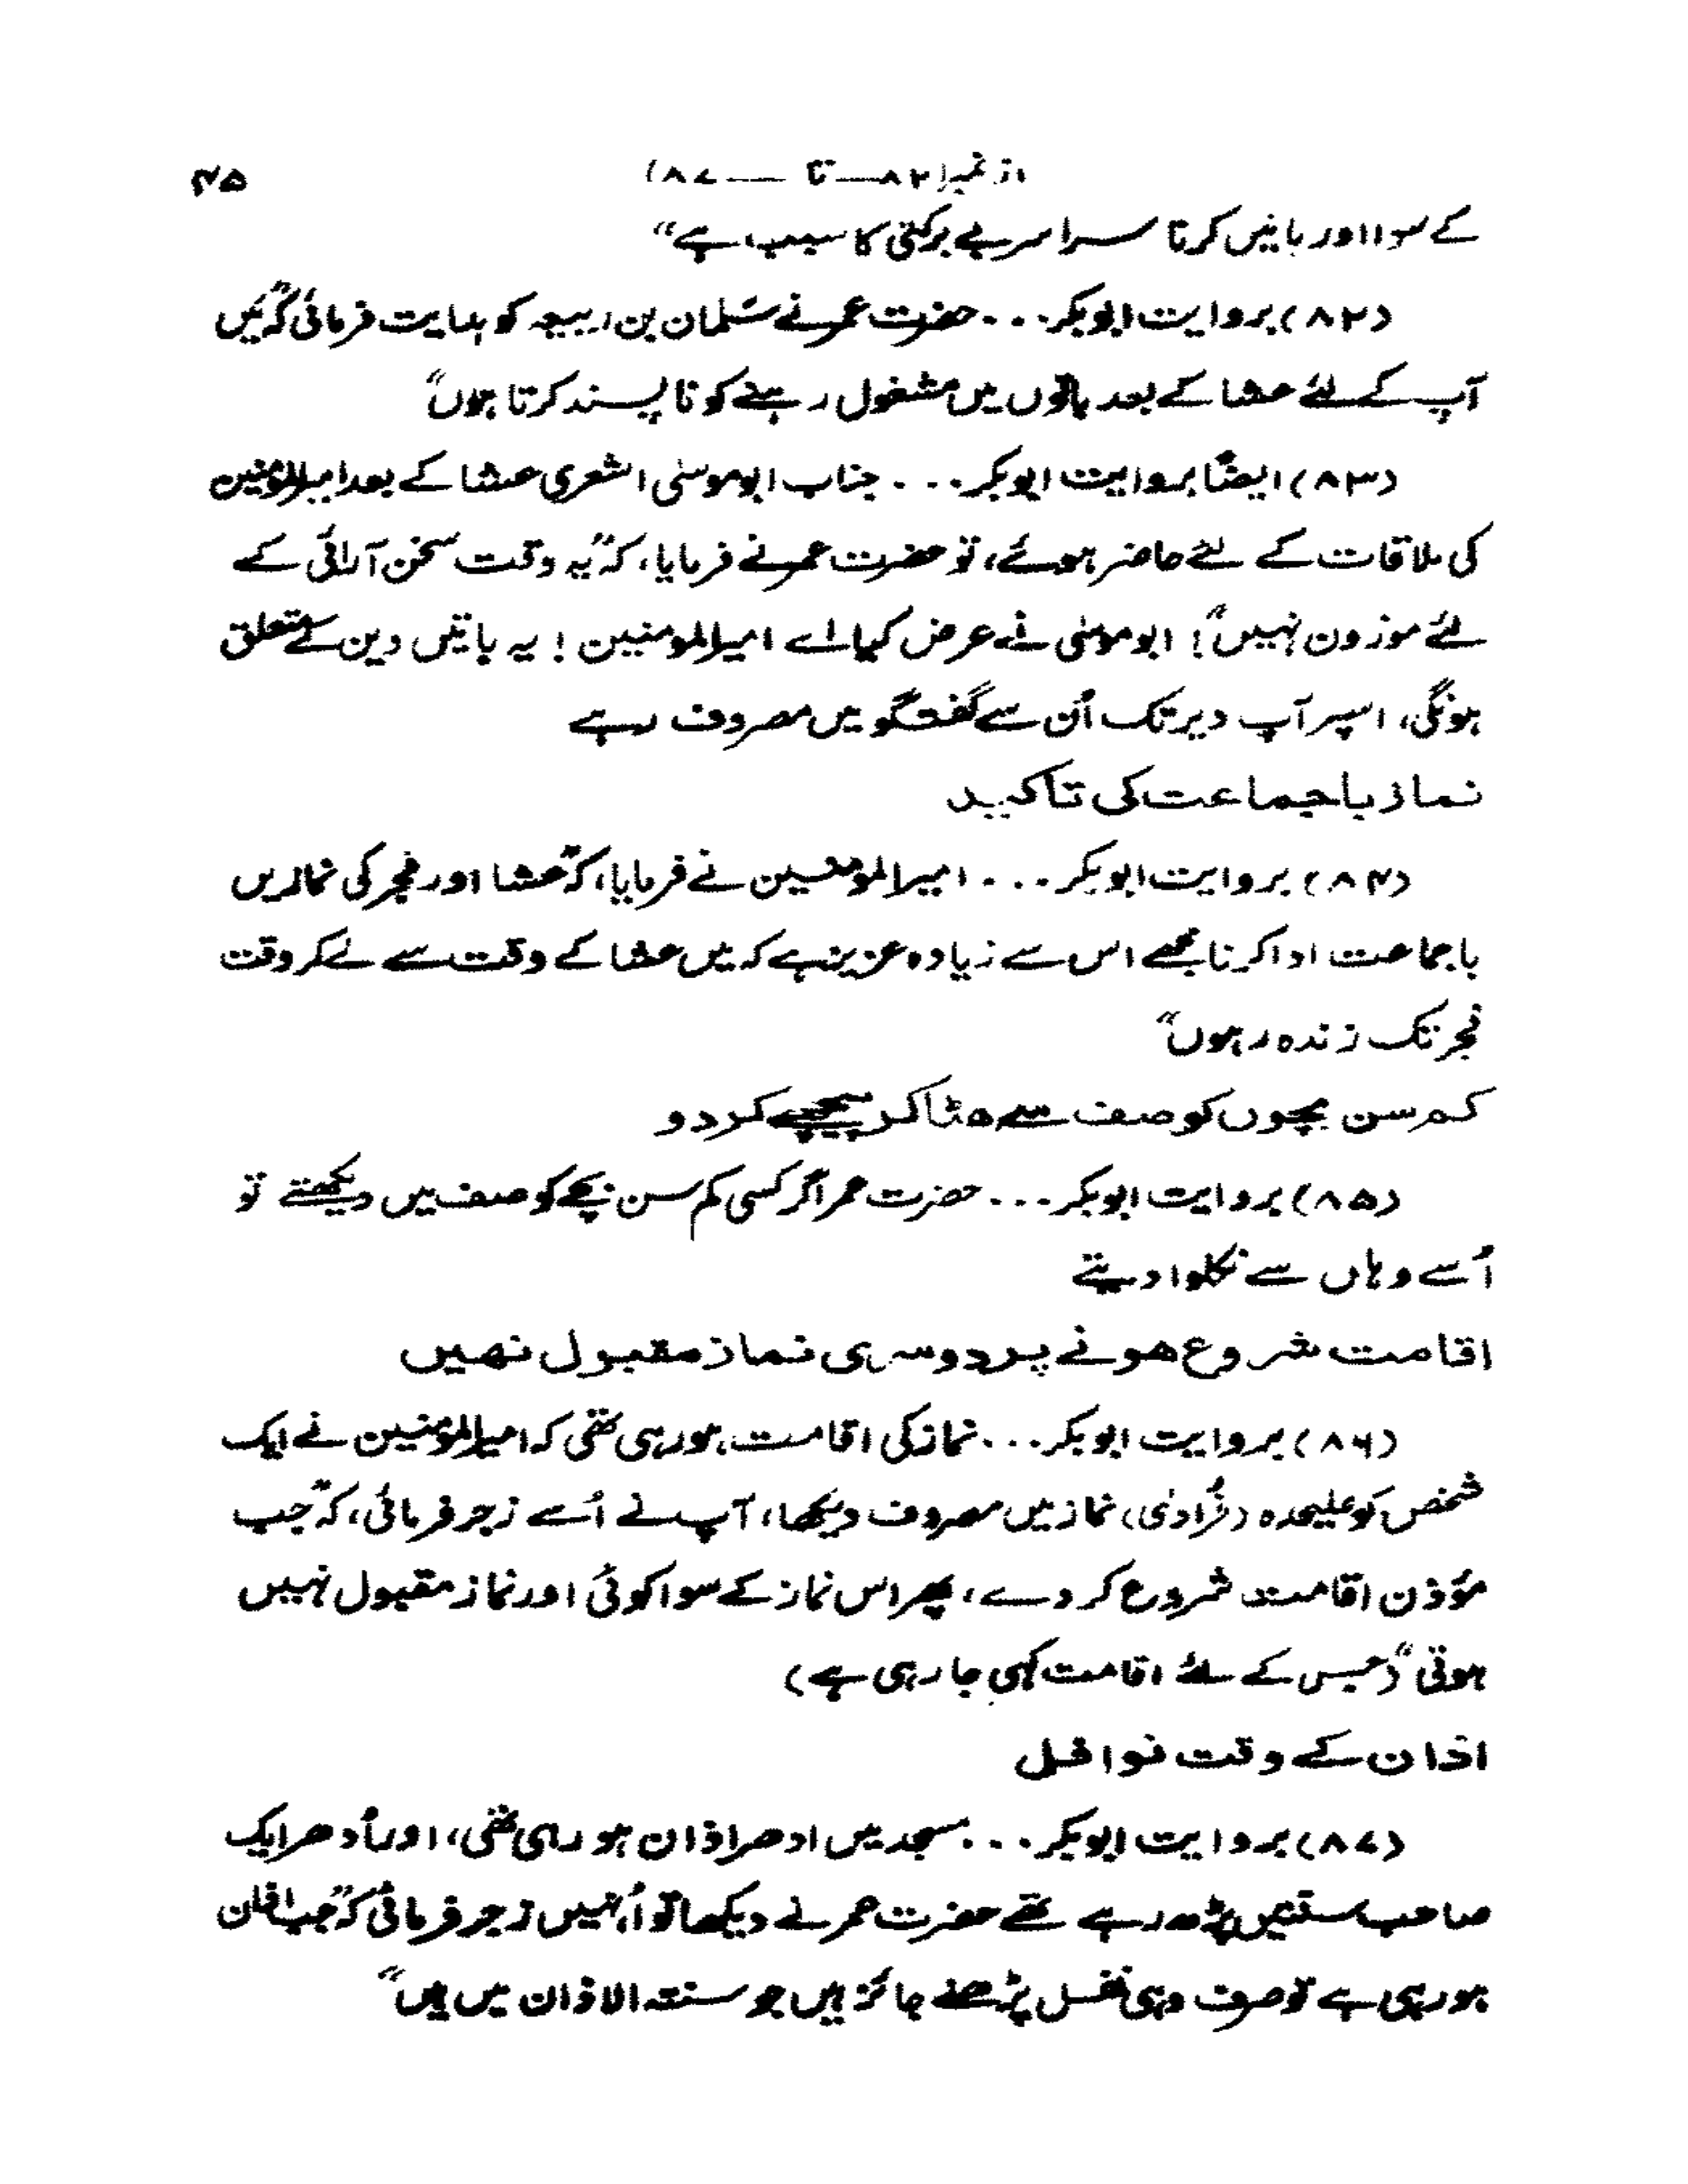 از نمبر (۸۲ — تا — ۸۷)
۴۵
کے سوا اور باتیں کرنا سراسر بے برکتی کا سبب ہے“
(۸۲) بروایت ابوبکر... حضرت عمر نے سلمان بن ربیعہ کو ہدایت فرمائی کہ ”میں
آپ کے لئے عشا کے بعد باتوں میں مشغول رہنے کو ناپسند کرتا ہوں“
(۸۳) ایضاً بروایت ابوبکر... جناب ابوموسٰی اشعری عشا کے بعد امیرالمؤمنین
کی ملاقات کے لئے حاضر ہوئے، تو حضرت عمر نے فرمایا، کہ ”یہ وقت سخن آرائی کے
لئے موزون نہیں“! ابوموسٰی نے عرض کیا اے امیرالمومنین! یہ باتیں دین کے متعلق
ہونگی، اسپر آپ دیر تک اُن سے گفتگو میں مصروف رہے
نماز باجماعت کی تاکید
(۸۴) بروایت ابوبکر... امیرالمومنین نے فرمایا، کہ ”عشا اور فجر کی نمازیں
باجماعت ادا کرنا مجھے اس سے زیادہ عزیز ہے کہ میں عشا کے وقت سے لےکر وقت
فجر تک زندہ رہوں“
کم سن بچوں کو صف سے ھٹا کر پیچھے کردو
(۸۵) بروایت ابوبکر... حضرت عمر اگر کسی کم سن بچے کو صف میں دیکھتے تو
اُسے وہاں سے نکلوا دیتے
اقامت شروع ھونے پر دوسری نماز مقبول نھیں
(۸۶) بروایت ابوبکر... نماز کی اقامت ہو رہی تھی کہ امیرالمؤمنین نے ایک
شخص کو علیحدہ (فُرادٰی) نماز میں مصروف دیکھا، آپ نے اُسے زجر فرمائی، کہ ”جب
مؤذن اقامت شروع کر دے، پھر اس نماز کے سوا کوئی اور نماز مقبول نہیں
ہوتی“ (جس کے لئے اقامت کہی جا رہی ہے)
اذان کے وقت نوافل
(۸۷) بروایت ابوبکر... مسجد میں ادھر اذان ہو رہی تھی، اور اُدھر ایک
صاحب سنتیں پڑھ رہے تھے حضرت عمر نے دیکھا تو اُنہیں زجر فرمائی کہ ”جب اذان
ہو رہی ہے تو صرف وہی نفل پڑھنے جائز ہیں جو سنتہ الاذان میں ہیں“